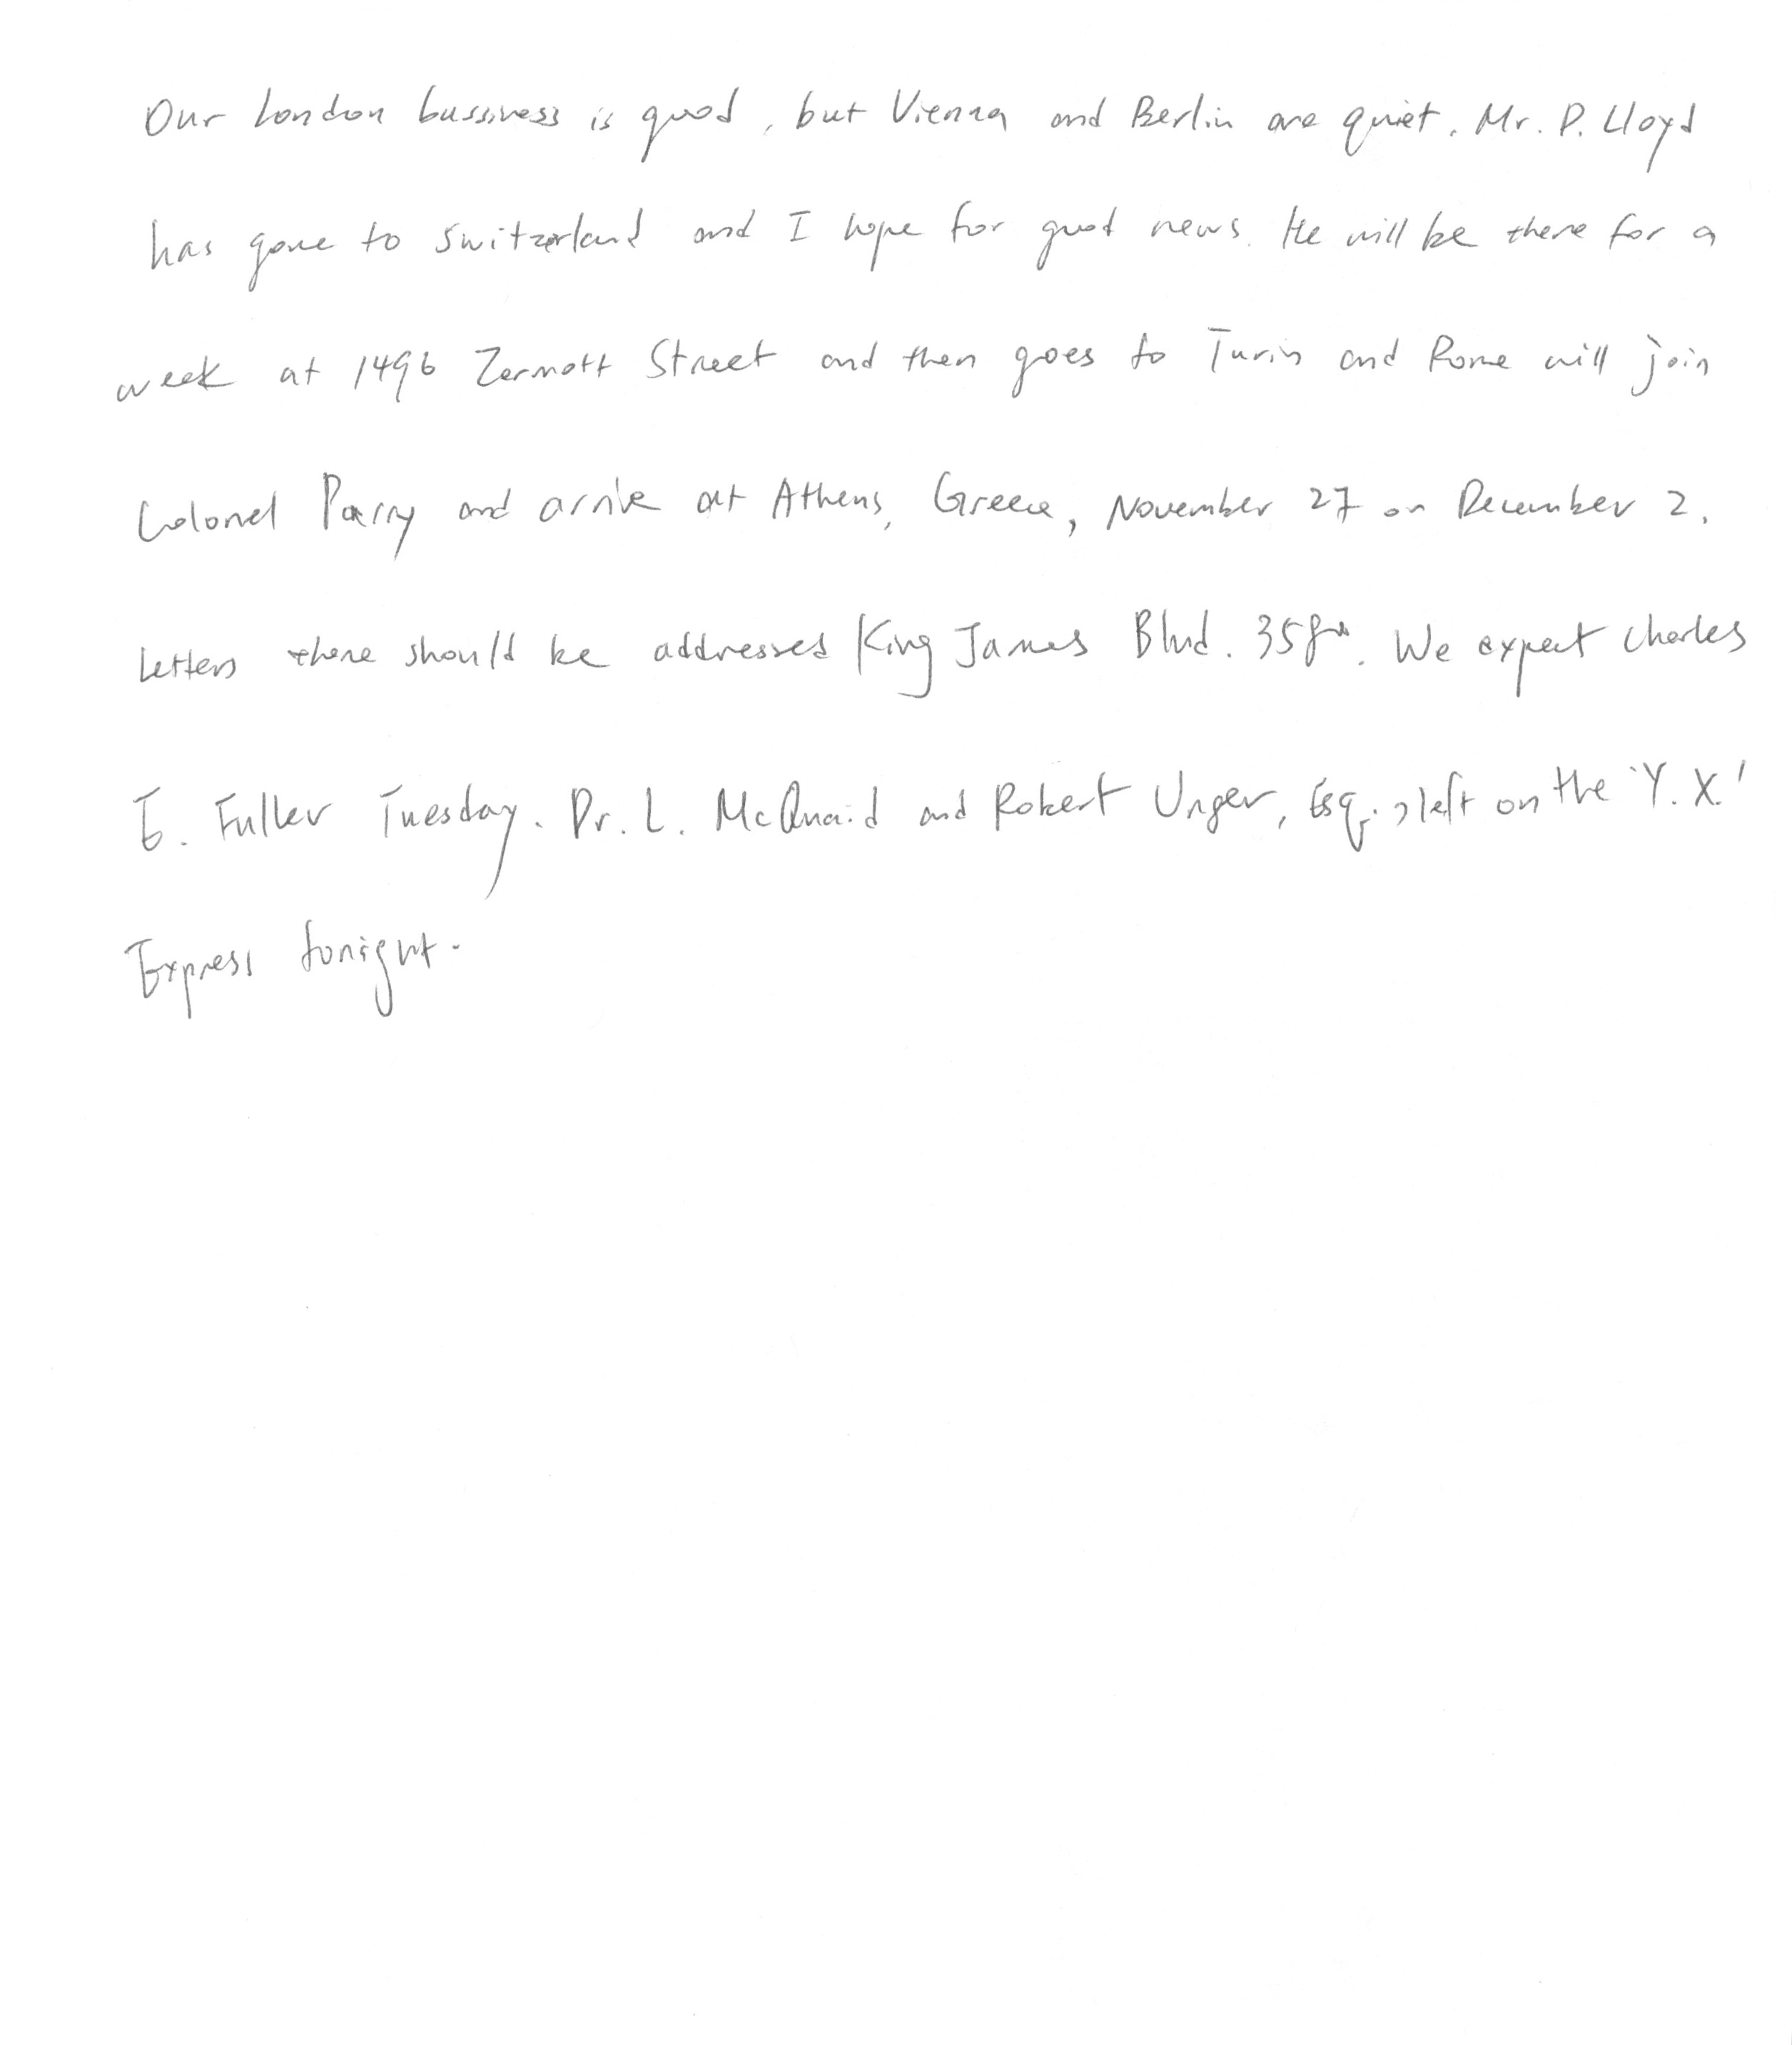 Our London bussiness is good, but Vienna and Berlin are quiet. Mr. D. Lloyd
has gone to Switzerland and I hope for good news. He will be there for a
week at 1496 Zermott Street and then goes to Turin and Rome will join
Colonel Parry and arrive at Athens, Greece, November 27 or December 2.
Letters there should be addressed King James Blvd. We expect Charles
E. Fuller Tuesday. Dr. L. McQuaid and Robert Unger, Esq., left on the 'Y.X.'
Express tonight.